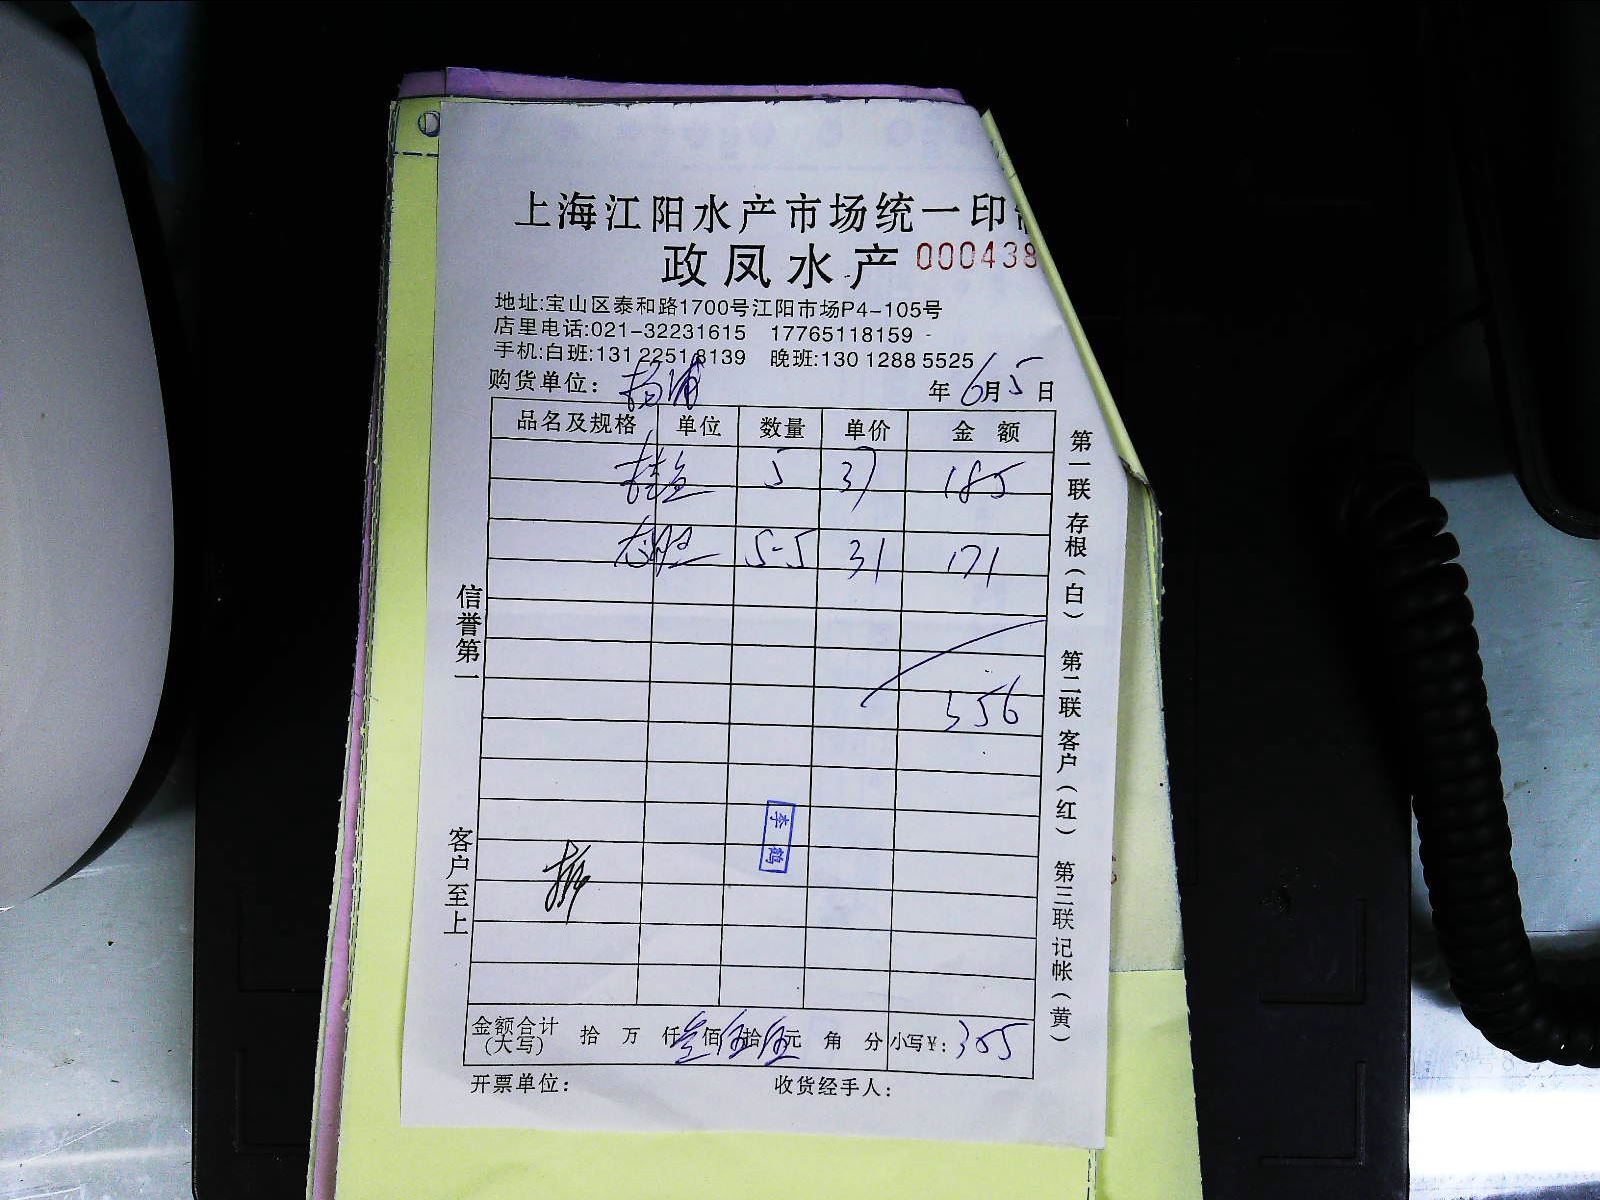 上海江阳水产市场统一印
政凤水产 000438
地址:宝山区泰和路1700号江阳市场P4-105号
店里电话:021-32231615 17765118159
手机:白班:131 2251 8139 晚班:130 1288 5525
购货单位: 杨浦 年 6月5日
品名及规格 单位 数量 单价 金额
桂鱼 5 37 185
5-5 31 171
356
李鹤
金额合计(大写) 拾 万 仟叁佰伍拾伍元 角 分 小写¥: 355
开票单位: 收货经手人:
信誉第一 客户至上
第一联 存根(白) 第二联 客户(红) 第三联 记帐(黄)